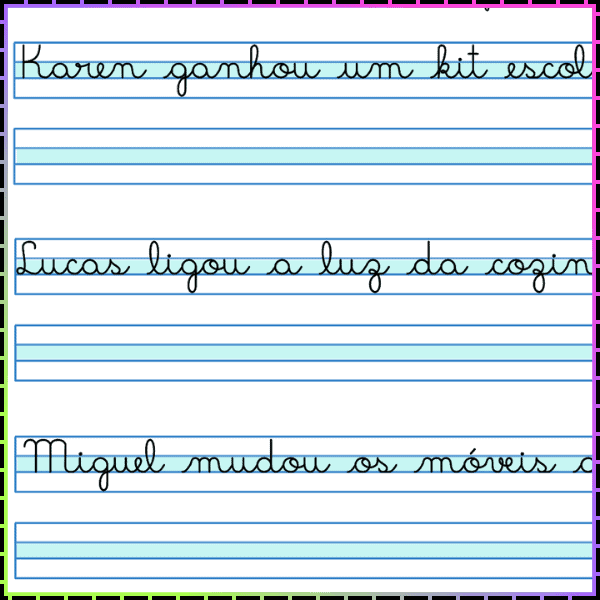 Karen ganhou um kit escol
Lucas ligou a luz da cozin
Miguel mudou os móveis